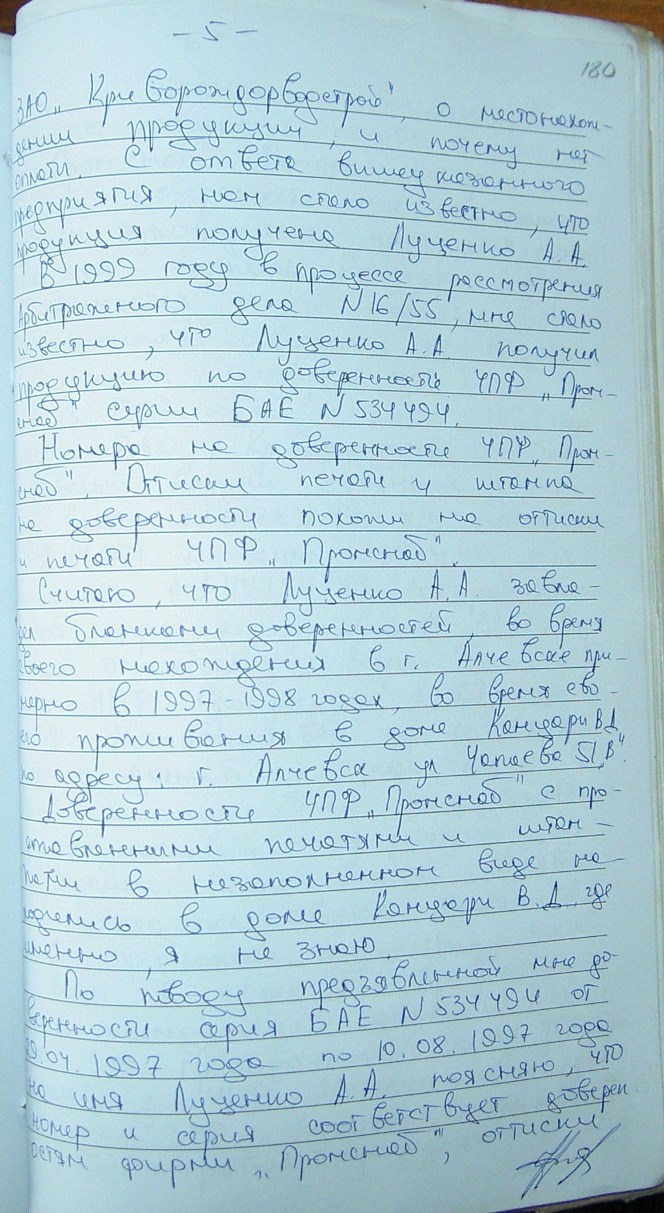 - 5 -
180
ЗАО „Криворождорводстрой", о местонахож-
дении продукции, и почему нет
оплати. С ответа вишеуказанного
предприятия, нам стало известно, что
продукция получена Луценко А.А.
В 1999 году в процессе рассмотрения
Арбитражного дела N 16/55, мне стало
известно, что Луценко А.А. получил
продукцию по доверенность ЧПФ „Пром-
снаб" серии БАЕ N 534494.
Номера на доверенность ЧПФ „Пром-
снаб". Оттиски печати и штампа
на доверенности похожи на оттиски
и печати ЧПФ „Промснаб".
Считаю, что Луценко А.А. завла-
дел бланками доверенностей, во время
своего нахождения в г. Алчевске при-
мерно в 1997-1998 годах, во время ево-
его проживания в доме Канцари В.Д.
по адресу: г. Алчевск ул Чапаева 51„В".
Доверенности ЧПФ „Промснаб" с про-
ставленними печатями и штам-
пами в незаполненном виде на-
ходились в доме Канцари В.Д. где
именно, я не знаю.
По поводу предъявленной мне до-
веренности серия БАЕ N 534494 от
29.04.1997 года по 10.08.1997 года
на имя Луценко А.А. поясняю, что
номер и серия соответствует доверен
остям фирми „Промснаб", оттиски